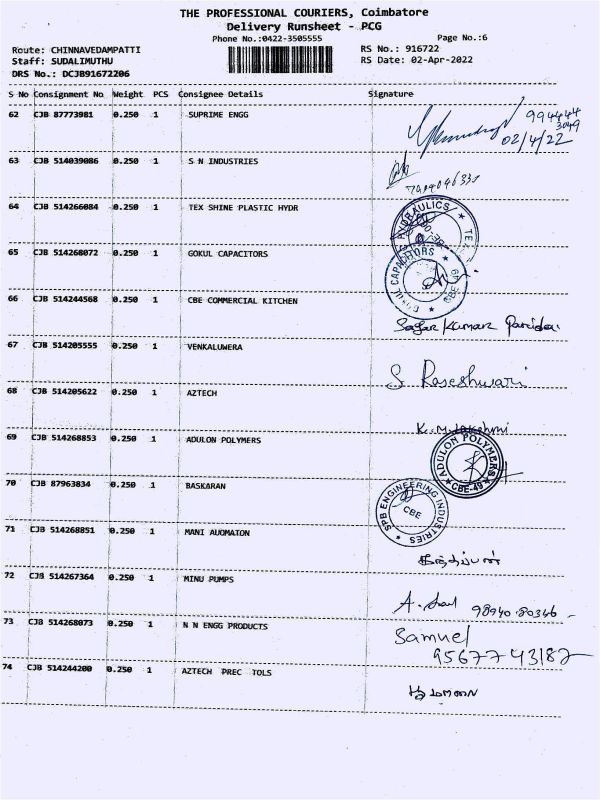 THE PROFESSIONAL COURIERS, Coimbatore
Delivery Runsheet - PCG
Phone No.:0422-3505555 Page No.:6
Route: CHINNAVEDAMPATTI RS No.: 916722
Staff: SUDALIMUTHU RS Date: 02-Apr-2022
DRS No.: DCJB91672206
S No Consignment No Weight PCS Consignee Details Signature
62 CJB 87773981 0.250 1 SUPRIME ENGG
994444
3049
02/4/22
63 CJB 514039086 0.250 1 S N INDUSTRIES
64 CJB 514266084 0.250 1 TEX SHINE PLASTIC HYDR
HYDRAULICS ★ TE
65 CJB 514268072 0.250 1 GOKUL CAPACITORS
CAPACITORS ★ CBE 49
66 CJB 514244568 0.250 1 CBE COMMERCIAL KITCHEN
Sagar Kumar
67 CJB 514205555 0.250 1 VENKALUWERA
S Raseshwari
68 CJB 514205622 0.250 1 AZTECH
K. M.
69 CJB 514268853 0.250 1 ADULON POLYMERS
ADULON POLYMERS ★ CBE-49 ★
70 CJB 87963834 0.250 1 BASKARAN
SPB ENGINEERING INDUSTRIES ★
CBE
71 CJB 514268851 0.250 1 MANI AUOMATON
72 CJB 514267364 0.250 1 MINU PUMPS
A. 98940 80346
73 CJB 514268073 0.250 1 N N ENGG PRODUCTS
Samuel
95677 43187
74 CJB 514244200 0.250 1 AZTECH PREC TOLS